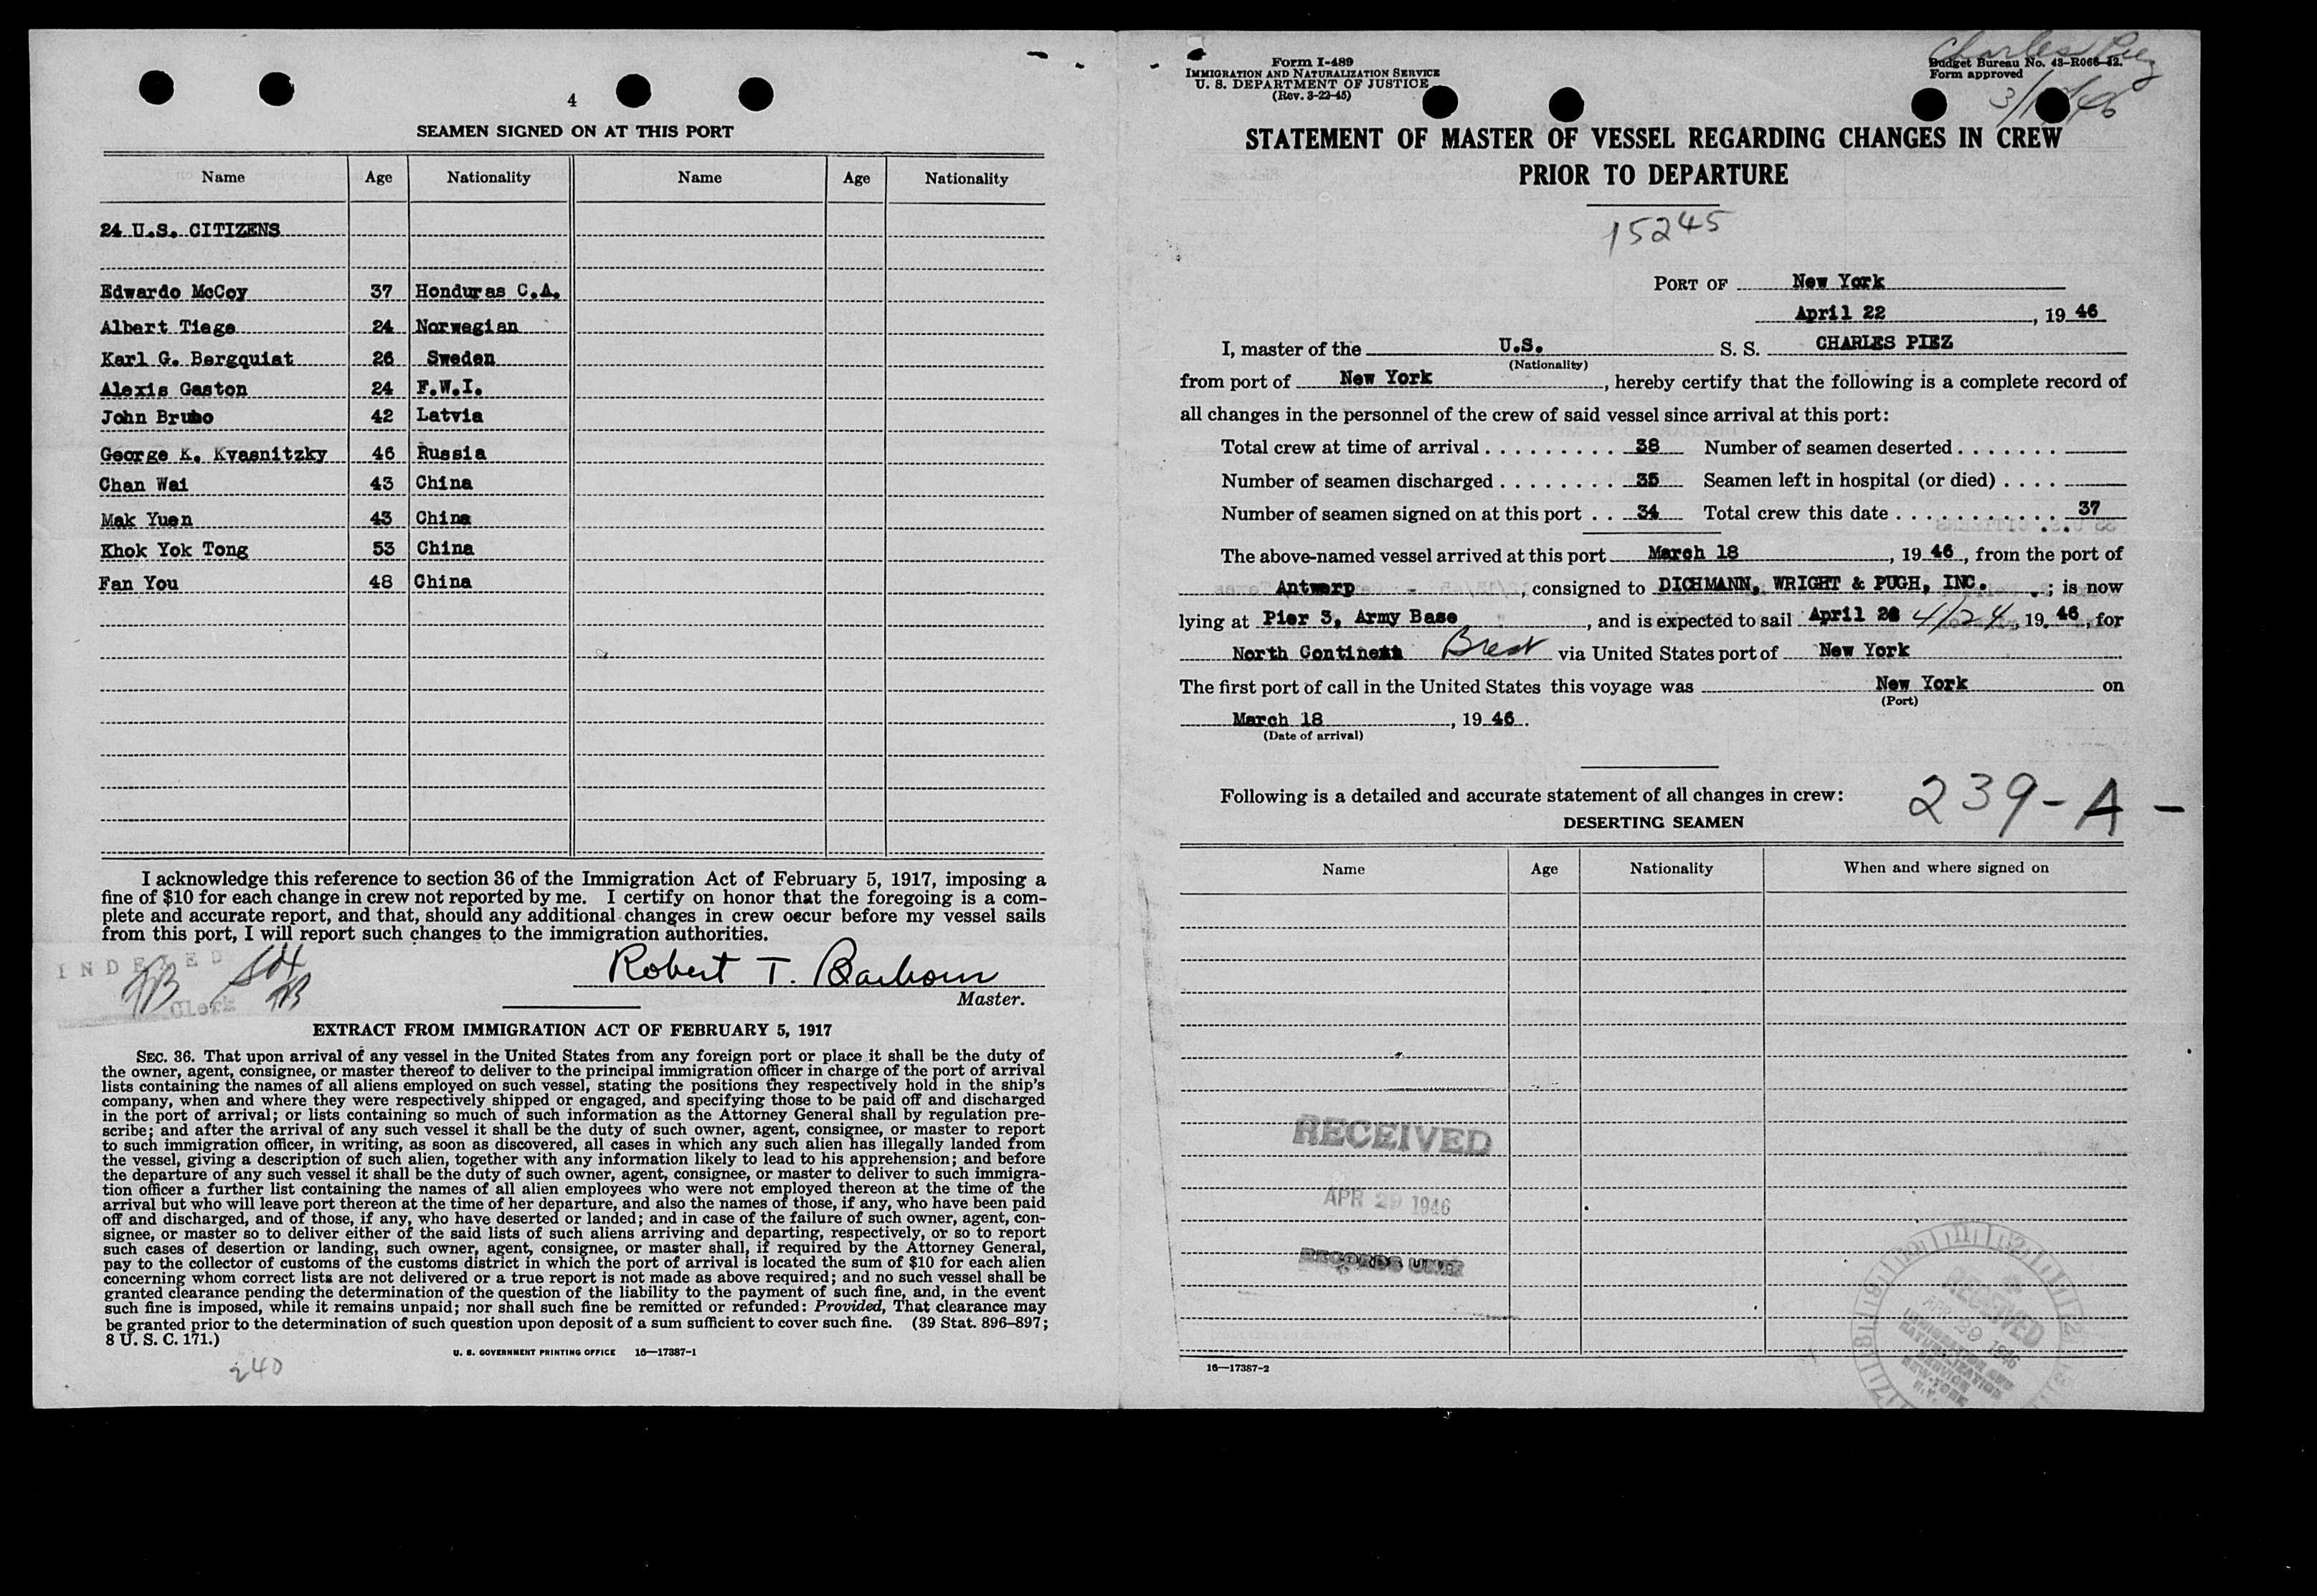 4
SEAMEN SIGNED ON AT THIS PORT
Name Age Nationality Name Age Nationality
24 U.S. CITIZENS
Edwardo McCoy 37 Honduras C.A.
Albert Tiege 24 Norwegian
Karl G. Bergquist 26 Sweden
Alexis Gaston 24 F.W.I.
John Bruno 42 Latvia
George K. Kvasnitzky 46 Russia
Chan Wai 43 China
Mak Yuen 43 China
Khok Yok Tong 53 China
Fan You 48 China
I acknowledge this reference to section 36 of the Immigration Act of February 5, 1917, imposing a
fine of $10 for each change in crew not reported by me. I certify on honor that the foregoing is a com-
plete and accurate report, and that, should any additional changes in crew occur before my vessel sails
from this port, I will report such changes to the immigration authorities.
INDEXED
Clerk
Robert T. Barhom
Master.
EXTRACT FROM IMMIGRATION ACT OF FEBRUARY 5, 1917
SEC. 36. That upon arrival of any vessel in the United States from any foreign port or place it shall be the duty of
the owner, agent, consignee, or master thereof to deliver to the principal immigration officer in charge of the port of arrival
lists containing the names of all aliens employed on such vessel, stating the positions they respectively hold in the ship's
company, when and where they were respectively shipped or engaged, and specifying those to be paid off and discharged
in the port of arrival; or lists containing so much of such information as the Attorney General shall by regulation pre-
scribe; and after the arrival of any such vessel it shall be the duty of such owner, agent, consignee, or master to report
to such immigration officer, in writing, as soon as discovered, all cases in which any such alien has illegally landed from
the vessel, giving a description of such alien, together with any information likely to lead to his apprehension; and before
the departure of any such vessel it shall be the duty of such owner, agent, consignee, or master to deliver to such immigra-
tion officer a further list containing the names of all alien employees who were not employed thereon at the time of the
arrival but who will leave port thereon at the time of her departure, and also the names of those, if any, who have been paid
off and discharged, and of those, if any, who have deserted or landed; and in case of the failure of such owner, agent, con-
signee, or master so to deliver either of the said lists of such aliens arriving and departing, respectively, or so to report
such cases of desertion or landing, such owner, agent, consignee, or master shall, if required by the Attorney General,
pay to the collector of customs of the customs district in which the port of arrival is located the sum of $10 for each alien
concerning whom correct lists are not delivered or a true report is not made as above required; and no such vessel shall be
granted clearance pending the determination of the question of the liability to the payment of such fine, and, in the event
such fine is imposed, while it remains unpaid; nor shall such fine be remitted or refunded: Provided, That clearance may
be granted prior to the determination of such question upon deposit of a sum sufficient to cover such fine. (39 Stat. 896–897;
8 U. S. C. 171.)
U. S. GOVERNMENT PRINTING OFFICE 16—17387-1
240
Form I-489
IMMIGRATION AND NATURALIZATION SERVICE
U. S. DEPARTMENT OF JUSTICE
(Rev. 3-22-45)
Charles Piez
Budget Bureau No. 43–R066–42.
Form approved
STATEMENT OF MASTER OF VESSEL REGARDING CHANGES IN CREW
PRIOR TO DEPARTURE
15245
PORT OF New York
April 22, 19 46
I, master of the U.S. S. S. CHARLES PIEZ
(Nationality)
from port of New York, hereby certify that the following is a complete record of
all changes in the personnel of the crew of said vessel since arrival at this port:
Total crew at time of arrival . . . . . . . . . 38 Number of seamen deserted . . . . . . .
Number of seamen discharged . . . . . . . . 35 Seamen left in hospital (or died) . . . .
Number of seamen signed on at this port . . 34 Total crew this date . . . . . . . . . . . 37
The above-named vessel arrived at this port March 18, 19 46, from the port of
Antwerp, consigned to DICHMANN, WRIGHT & PUGH, INC.; is now
lying at Pier 3, Army Base, and is expected to sail April 4/24, 19 46, for
North Continent Brest via United States port of New York
The first port of call in the United States this voyage was New York on
(Port)
March 18, 19 46.
(Date of arrival)
Following is a detailed and accurate statement of all changes in crew:
239-A-
DESERTING SEAMEN
Name Age Nationality When and where signed on
RECEIVED
APR 29 1946
RECORDS UNIT
RECEIVED
APR 29 1946
IMMIGRATION AND
NATURALIZATION
SERVICE
NEW YORK
N.Y.
16—17387-2